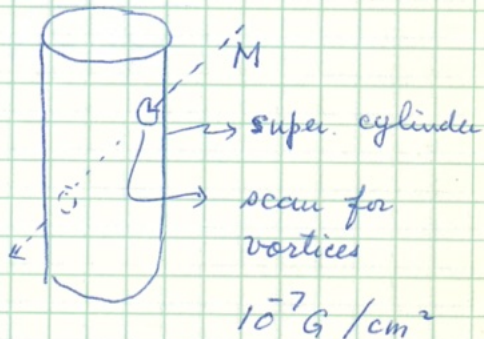 M
super. cylinder
scan for
vortices
10⁻⁷ G/cm²